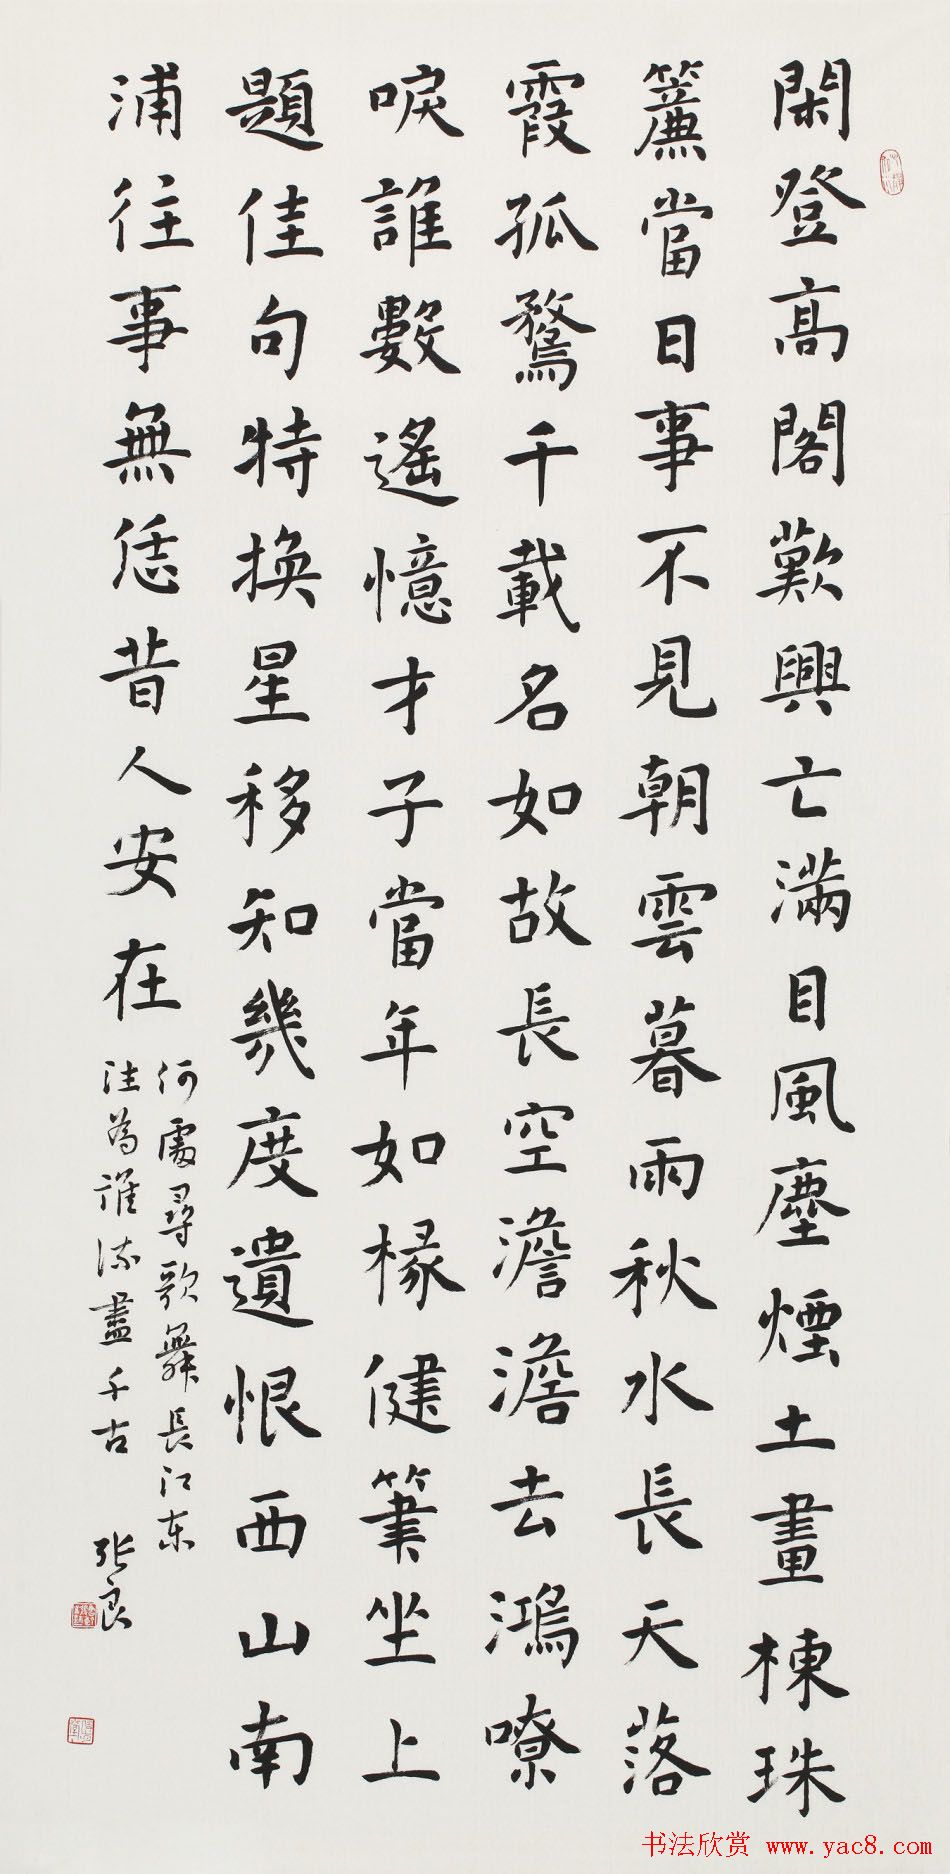 閑登高閣歎興亡滿目風塵煙土畫棟珠
簾當日事不見朝雲暮雨秋水長天落
霞孤鶩千載名如故長空澹澹去鴻嘹
唳誰數遙憶才子當年如椽健筆坐上
題佳句特換星移知幾度遺恨西山南
浦往事無恙昔人安在
何處尋歌舞長江東
注為誰流盡千古 张良
书法欣赏 www.yac8.com